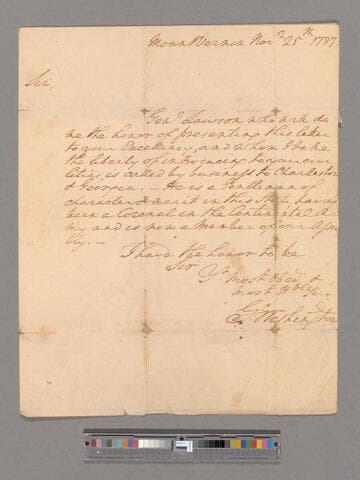 Mount Vernon Nov.r 25th 1787.
Sir,
Gen.l Lawson who will do
me the honor of presenting this letter
to your Excellency, and whom I take
the liberty of introducing to your civi
lities, is called by business to Charleston
& Georgia. — He is a Gentleman of
character & merit in this State, having
been a Colonel in the Continental Ar
my and is now a Member of our Assem
bly. —
I have the honor to be
Sir
Yr most Obedt &
most Hble Ser
Go Washington